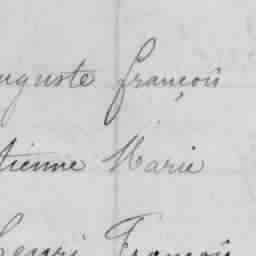 uguste françois
tienne Marie
Henri François